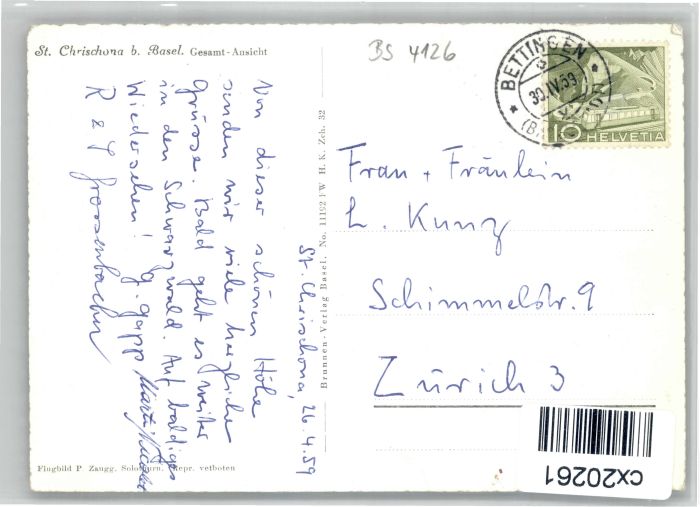 St. Chrischona b. Basel. Gesamt-Ansicht
BS 4126
BETTINGEN
30.IV.59
10 HELVETIA
St. Chrischona, 26.4.59
Von dieser schönen Höhe
senden wir viele herzliche
Grüsse. Bald geht es weiter
in den Schwarzwald. Auf baldiges
Wiedersehen!
R & Grossenbacher
Frau + Fräulein
L. Kunz
Schimmelstr. 9
Zürich 3
Brunnen-Verlag Basel, No. 11192 FW H. K. Zch. 32
Flugbild P. Zaugg. Solothurn. Repr. verboten
cx20261